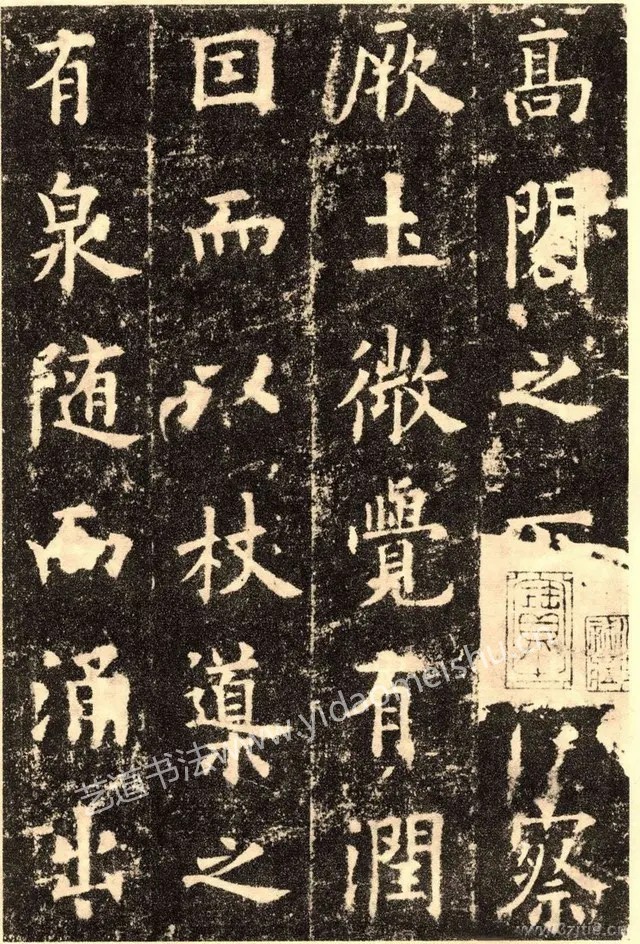 高閣之察
厥土微覺有潤
囙而以杖導之
有泉随而涌出
艺道书法www.yidaomeishu.cn
www.3zitie.cn